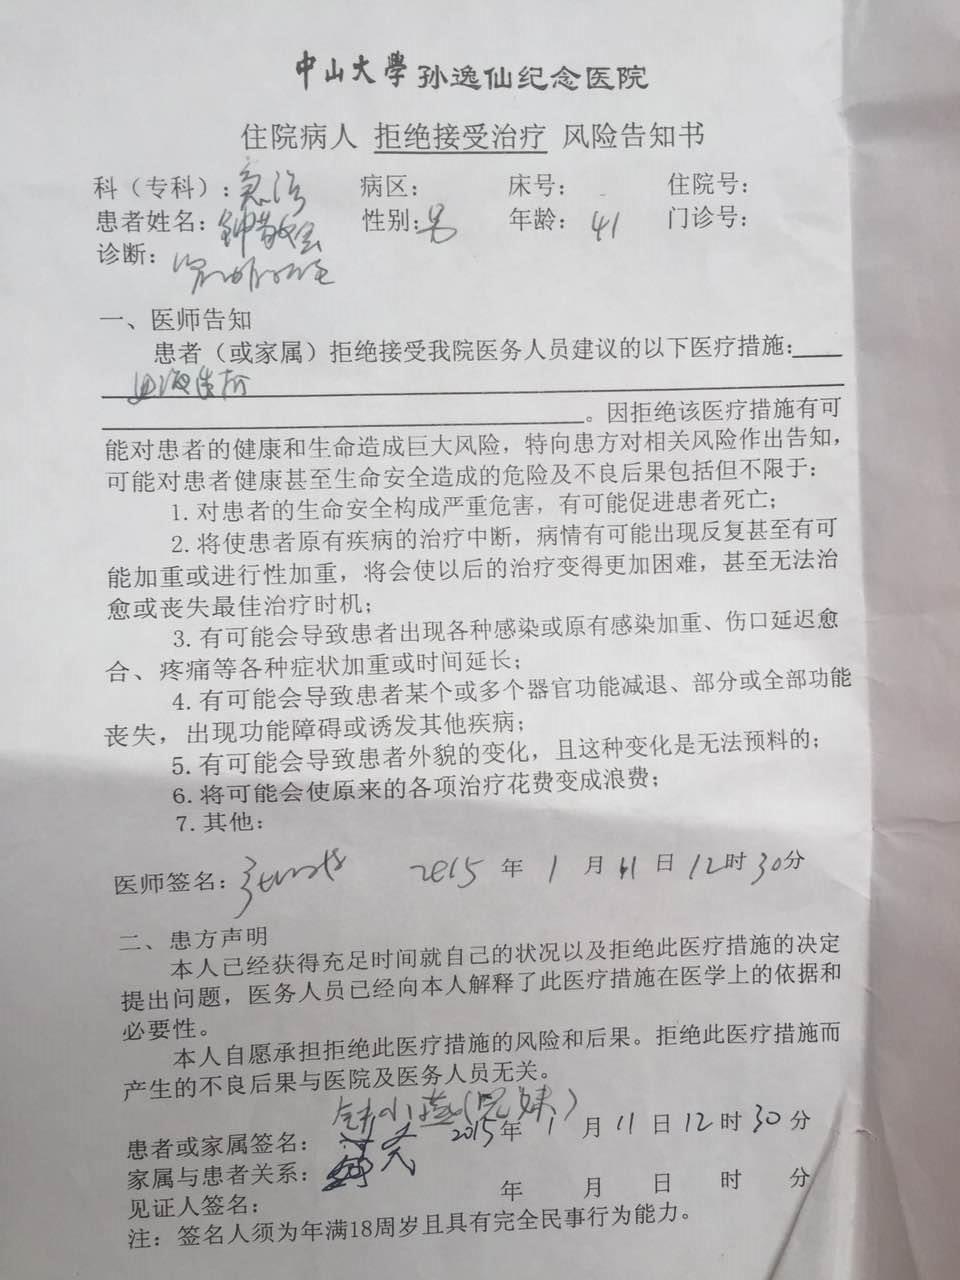 中山大學孙逸仙纪念医院
住院病人 拒绝接受治疗 风险告知书
科（专科）：急诊 病区： 床号： 住院号：
患者姓名：钟 性别：男 年龄：41 门诊号：
诊断：
一、医师告知
患者（或家属）拒绝接受我院医务人员建议的以下医疗措施：
。因拒绝该医疗措施有可
能对患者的健康和生命造成巨大风险，特向患方对相关风险作出告知，
可能对患者健康甚至生命安全造成的危险及不良后果包括但不限于：
1.对患者的生命安全构成严重危害，有可能促进患者死亡；
2.将使患者原有疾病的治疗中断，病情有可能出现反复甚至有可
能加重或进行性加重，将会使以后的治疗变得更加困难，甚至无法治
愈或丧失最佳治疗时机；
3.有可能会导致患者出现各种感染或原有感染加重、伤口延迟愈
合、疼痛等各种症状加重或时间延长；
4.有可能会导致患者某个或多个器官功能减退、部分或全部功能
丧失，出现功能障碍或诱发其他疾病；
5.有可能会导致患者外貌的变化，且这种变化是无法预料的；
6.将可能会使原来的各项治疗花费变成浪费；
7.其他：
医师签名： 2015年1月11日12时30分
二、患方声明
本人已经获得充足时间就自己的状况以及拒绝此医疗措施的决定
提出问题，医务人员已经向本人解释了此医疗措施在医学上的依据和
必要性。
本人自愿承担拒绝此医疗措施的风险和后果。拒绝此医疗措施而
产生的不良后果与医院及医务人员无关。
钟小燕（兄妹）
患者或家属签名： 2015年1月11日12时30分
家属与患者关系：
见证人签名： 年 月 日 时 分
注：签名人须为年满18周岁且具有完全民事行为能力。